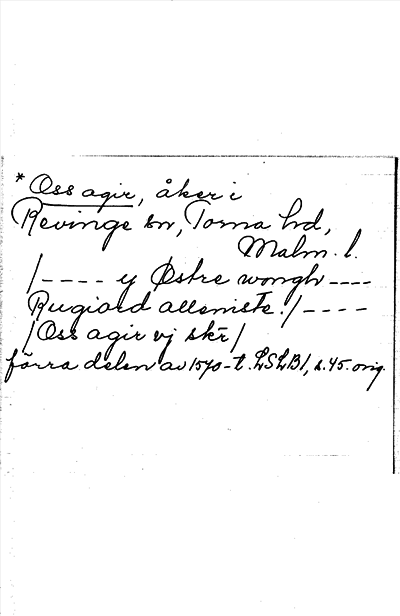 * Oss agir, åker i
Revinge sn, Torna hd,
Malm. l.
/---- y Østre wongh ----
Rugiord allemiste /----
/Oss agir vj skr/
förra delen av 1570-t. LSLB1, s.45. orig.